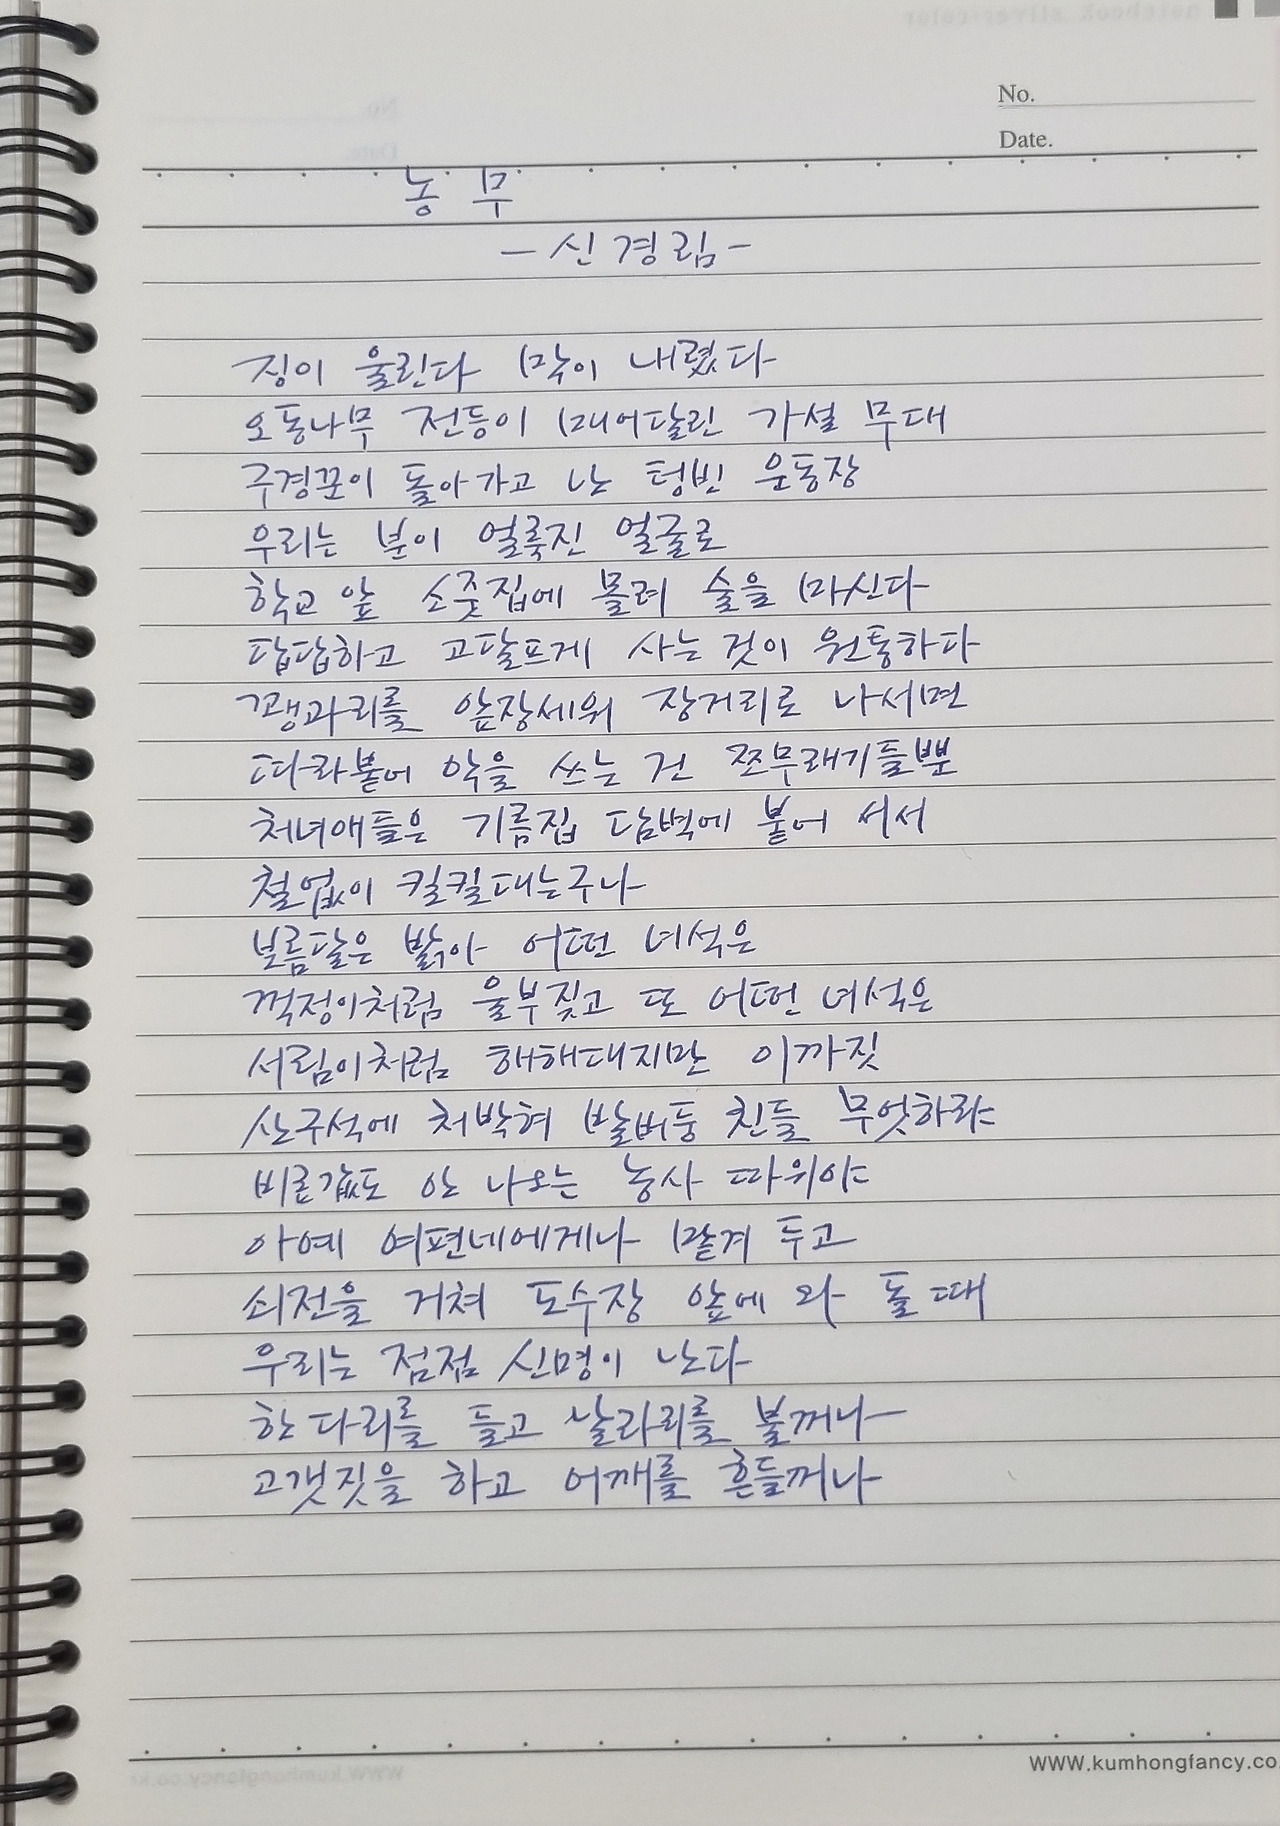 No.
Date.
농 무
- 신경림 -
징이 울린다 막이 내렸다
오동나무 전등이 매어달린 가설 무대
구경꾼이 돌아가고 난 텅빈 운동장
우리는 분이 얼룩진 얼굴로
학교 앞 소줏집에 몰려 술을 마신다
답답하고 고달프게 사는 것이 원통하다
꽹과리를 앞장세워 장거리로 나서면
따라붙어 악을 쓰는 건 쪼무래기들뿐
처녀애들은 기름집 담벽에 붙어 서서
철없이 킬킬대는구나
보름달은 밝아 어떤 녀석은
꺽정이처럼 울부짖고 또 어떤 녀석은
서림이처럼 해해대지만 이까짓
산구석에 처박혀 발버둥 친들 무엇하랴
비룟값도 안 나오는 농사 따위야
아예 여편네에게나 맡겨 두고
쇠전을 거쳐 도수장 앞에 와 돌 때
우리는 점점 신명이 난다
한 다리를 들고 날라리를 불꺼나
고갯짓을 하고 어깨를 흔들꺼나
WWW.kumhongfancy.co